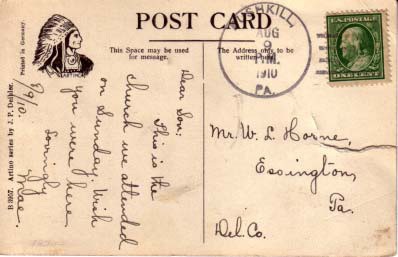 POST CARD
This Space may be used
for message.
The Address only to be
written here.
BUSHKILL
AUG
9
M.
1910
PA.
U.S. POSTAGE
ONE CENT
Printed in Germany.
ARTINO
Artino series by J. P. Deibler.
8/9/10.
Dear Son:
This is the
church we attended
on Sunday. Wish
you were here.
Lovingly
Mae.
Mr. W. L. Horne,
Essington,
Pa.
Del. Co.